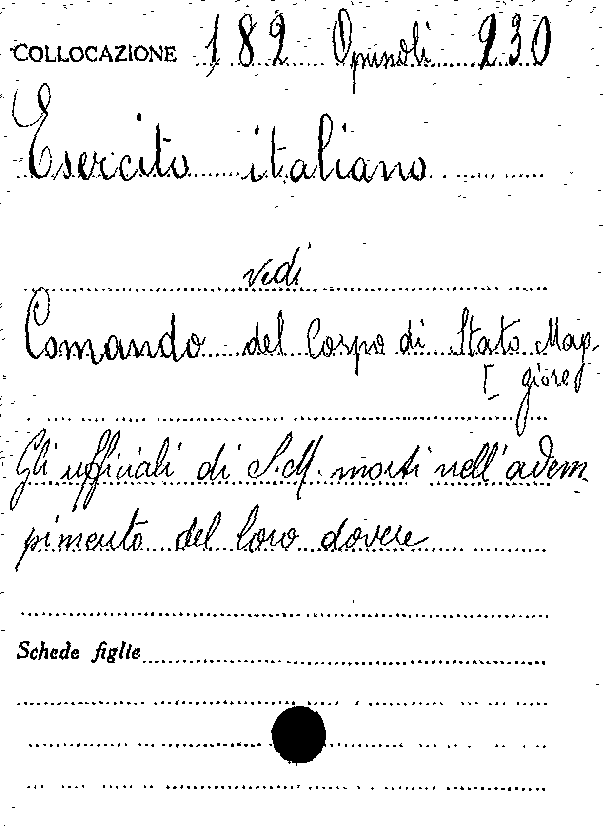 COLLOCAZIONE 182 Opuscoli 230
Esercito italiano
vedi
Comando del Corpo di Stato Mag-
[giore
Gli ufficiali di S.M. morti nell'adem-
pimento del loro dovere
Schede figlie